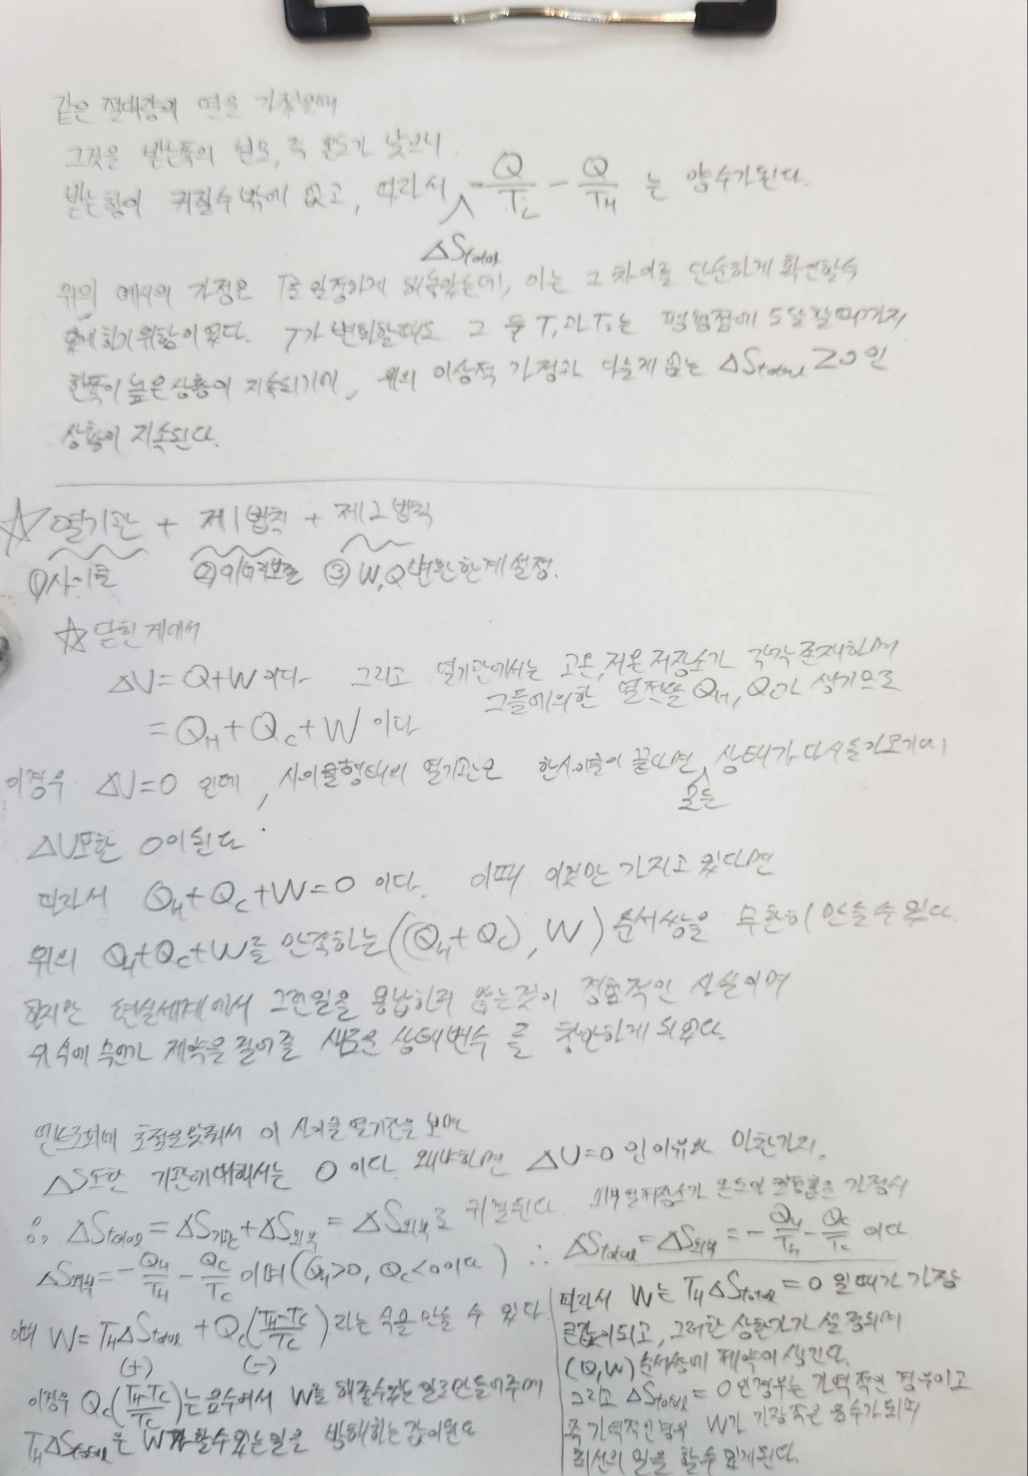 같은 절대량의 열을 가질때
그것을 받는쪽의 분모, 즉 온도가 낮으니
받는항이 커질수밖에 없고, 따라서 Q/T_L - Q/T_H 는 양수가된다.
ΔStotal
위의 예시의 가정은 T를 일정하게 되어있는데, 이는 그 차이를 단순하게 확인할수
있게 하기 위함이었다. T가 변화할때도 그 두 T₁과 T₂는 평형점에 도달할때까지
한쪽이 높은상황이 지속되기에, 위의 이상적 가정과 다를게 없는 ΔStotal ≥ 0 인
상황이 지속된다.
☆ 열기관 + 제1법칙 + 제2법칙
① 사이클 ② 에너지보존 ③ W, Q 변환한계설정.
☆ 닫힌계에서
ΔU = Q+W 이다. 그리고 열기관에서는 고온, 저온 저장소가 각각 존재하며
그들에의한 열전달 Q_H, Q_C가 생기므로
= Q_H + Q_C + W 이다
이경우 ΔU=0 인데, 사이클형태의 열기관은 한사이클이 끝나면 모든 상태가 다시돌아오기에
ΔU또한 0이된다
따라서 Q_H+Q_C+W=0 이다. 이때 이것만 가지고 있다면
위의 Q_H+Q_C+W를 만족하는 ((Q_H+Q_C), W) 순서쌍을 무한히 만들수있다.
하지만 현실세계에서 그런일을 용납하지 않는것이 경험적인 사실이며
위 식에 무언가 제약을 걸어줄 새로운 상태변수를 창안하게 되었다.
엔트로피에 초점을맞춰서 이 사이클 열기관을 보면
ΔS또한 기관에대해서는 0 이다. 왜냐하면 ΔU=0 인이유와 마찬가지.
∴ ΔStotal = ΔS기관 + ΔS외부 = ΔS외부로 귀결된다. 외부열저장소가 온도의 일정함을 가정시
ΔS외부 = -Q_H/T_H - Q_C/T_C 이며 (Q_H>0, Q_C<0이다) ∴ ΔStotal = ΔS외부 = -Q_H/T_H - Q_C/T_C 이다
이때 W = T_HΔStotal + Q_C((T_H-T_C)/T_C) 라는 식을 만들 수 있다.
(+) (-)
이경우 Q_C((T_H-T_C)/T_C)는 음수여서 W를 해줄수있는 일로만들어주며
T_HΔStotal은 W가 할수있는일을 방해하는 값이된다
따라서 W는 T_HΔStotal = 0 일때가 가장
큰값이되고, 그러한 상한가가 설정되며
(Q,W) 순서쌍에 제약이 생긴다.
그리고 ΔStotal = 0 인경우는 가역적인 경우이고
즉 가역적인경우 W가 가장작은 음수가되며
최선의 일을 할수 있게된다.